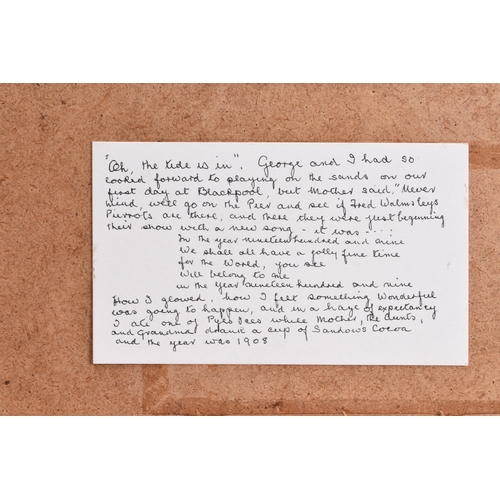 "Oh, the tide is in". George and I had so
looked forward to playing on the sands on our
first day at Blackpool, but Mother said, "Never
mind, we'll go on the Pier and see if Fred Walmsleys
Pierrots are there, and there they were just beginning
their show with a new song - it was ....
In the year nineteen hundred and nine
We shall all have a jolly fine time
for the World, you see
Will belong to me
in the Year nineteen hundred and nine
How I glowed, how I felt something Wonderful
was going to happen, and in a haze of expectancy
I ate one of Pyes Ices while Mother, the aunts,
and Grandma drank a cup of Sandows Cocoa
and the year was 1908